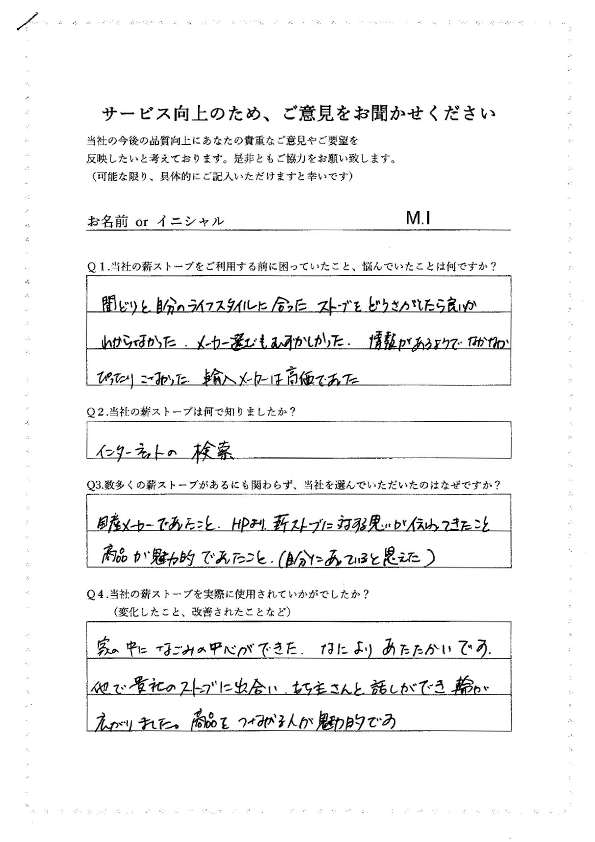 サービス向上のため、ご意見をお聞かせください
当社の今後の品質向上にあなたの貴重なご意見やご要望を
反映したいと考えております。是非ともご協力をお願い致します。
（可能な限り、具体的にご記入いただけますと幸いです）
お名前 or イニシャル M.I
Q1.当社の薪ストーブをご利用する前に困っていたこと、悩んでいたことは何ですか？
間どりと、自分のライフスタイルに合った ストーブを どうさがしたら良いか
わからなかった．メーカー選びもむずかしかった． 情報があるようで なかなか
ぴったり こなかった 輸入メーカーは高価であった
Q2.当社の薪ストーブは何で知りましたか？
インターネットの 検索
Q3.数多くの薪ストーブがあるにも関わらず、当社を選んでいただいたのはなぜですか？
国産メーカーであったこと．HPより、薪ストーブに対する思いが伝わってきたこと
商品が魅力的であったこと．（自分に あっていると思えた）
Q4.当社の薪ストーブを実際に使用されていかがでしたか？
（変化したこと、改善されたことなど）
家の中に なごみの中心ができた． なにより あたたかいです．
他で貴社のストーブに出会い、もち主さんと 話しができ 輪が
広がりました。商品を つなげる人が魅力的です